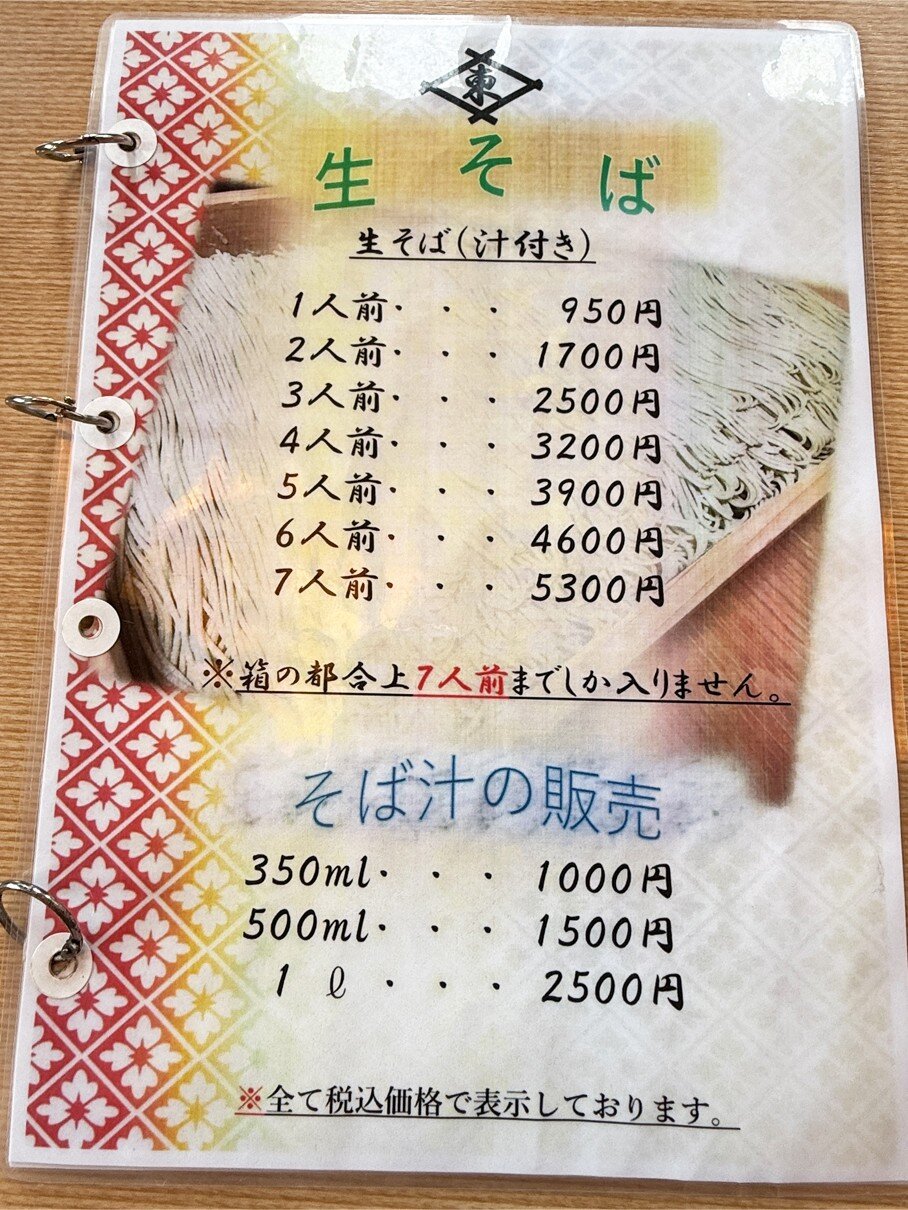 東
生そば
生そば(汁付き)
1人前・・・950円
2人前・・・1700円
3人前・・・2500円
4人前・・・3200円
5人前・・・3900円
6人前・・・4600円
7人前・・・5300円
※箱の都合上7人前までしか入りません。
そば汁の販売
350ml・・・1000円
500ml・・・1500円
1ℓ・・・2500円
※全て税込価格で表示しております。